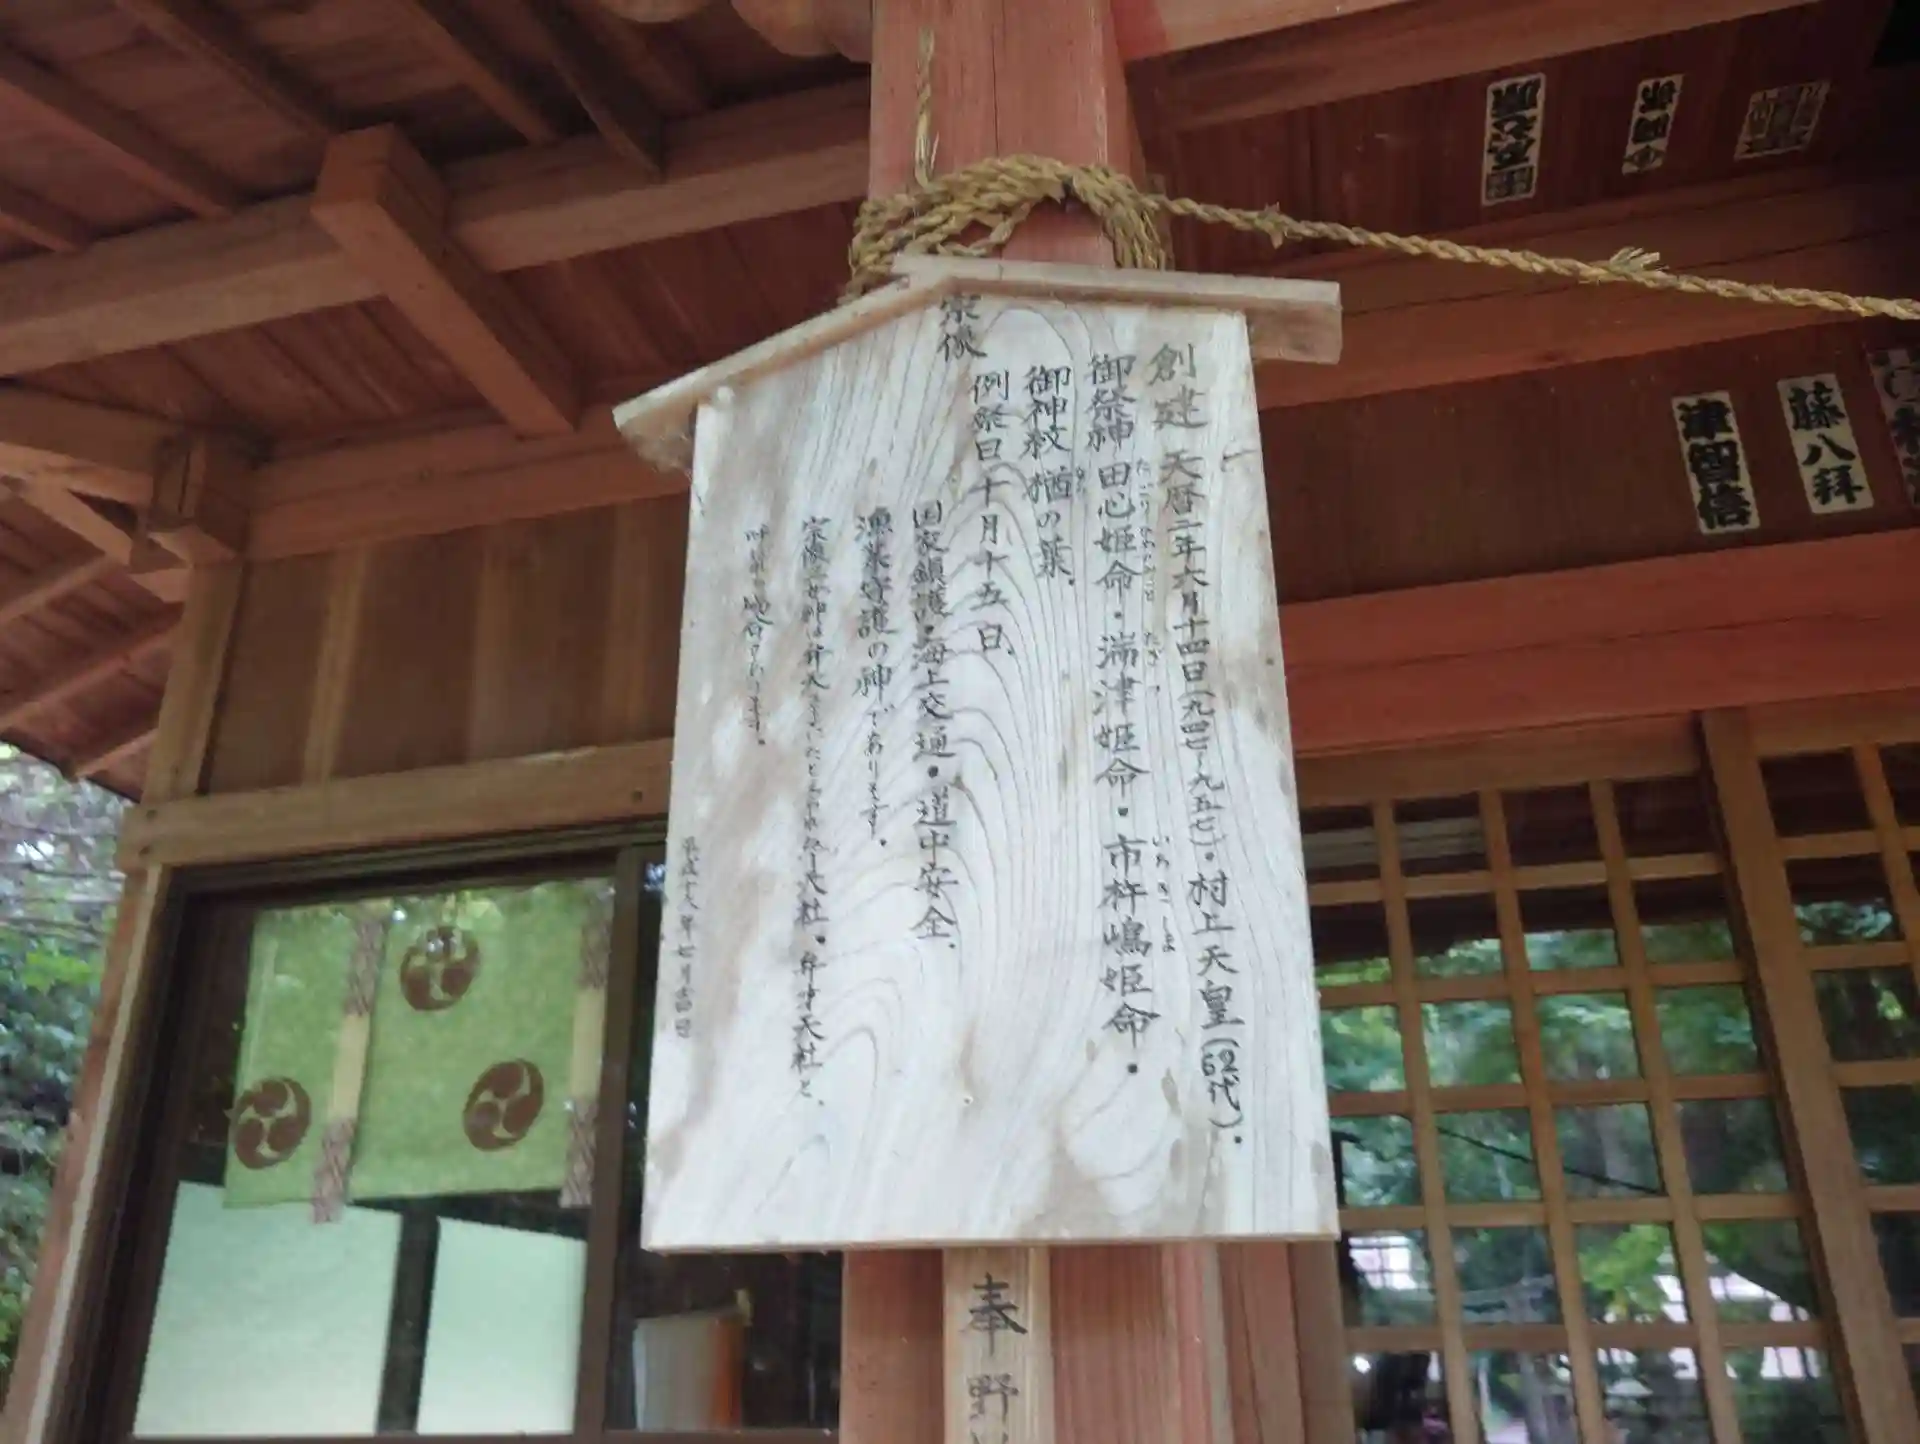 創建 天暦二年六月十四日(九四七~九五七)・村上天皇(62代)・
御祭神 田心姫命・湍津姫命・市杵嶋姫命・
御神紋 楢の葉.
例祭日 十月十五日.
宗像
国家鎮護・海上交通・道中安全.
漁業守護の神であります.
宗像三女神は弁天さ
大社・弁才天社と、
呼 場合 あります.
平成十八年七月 日
奉 野
津智信
藤八拝